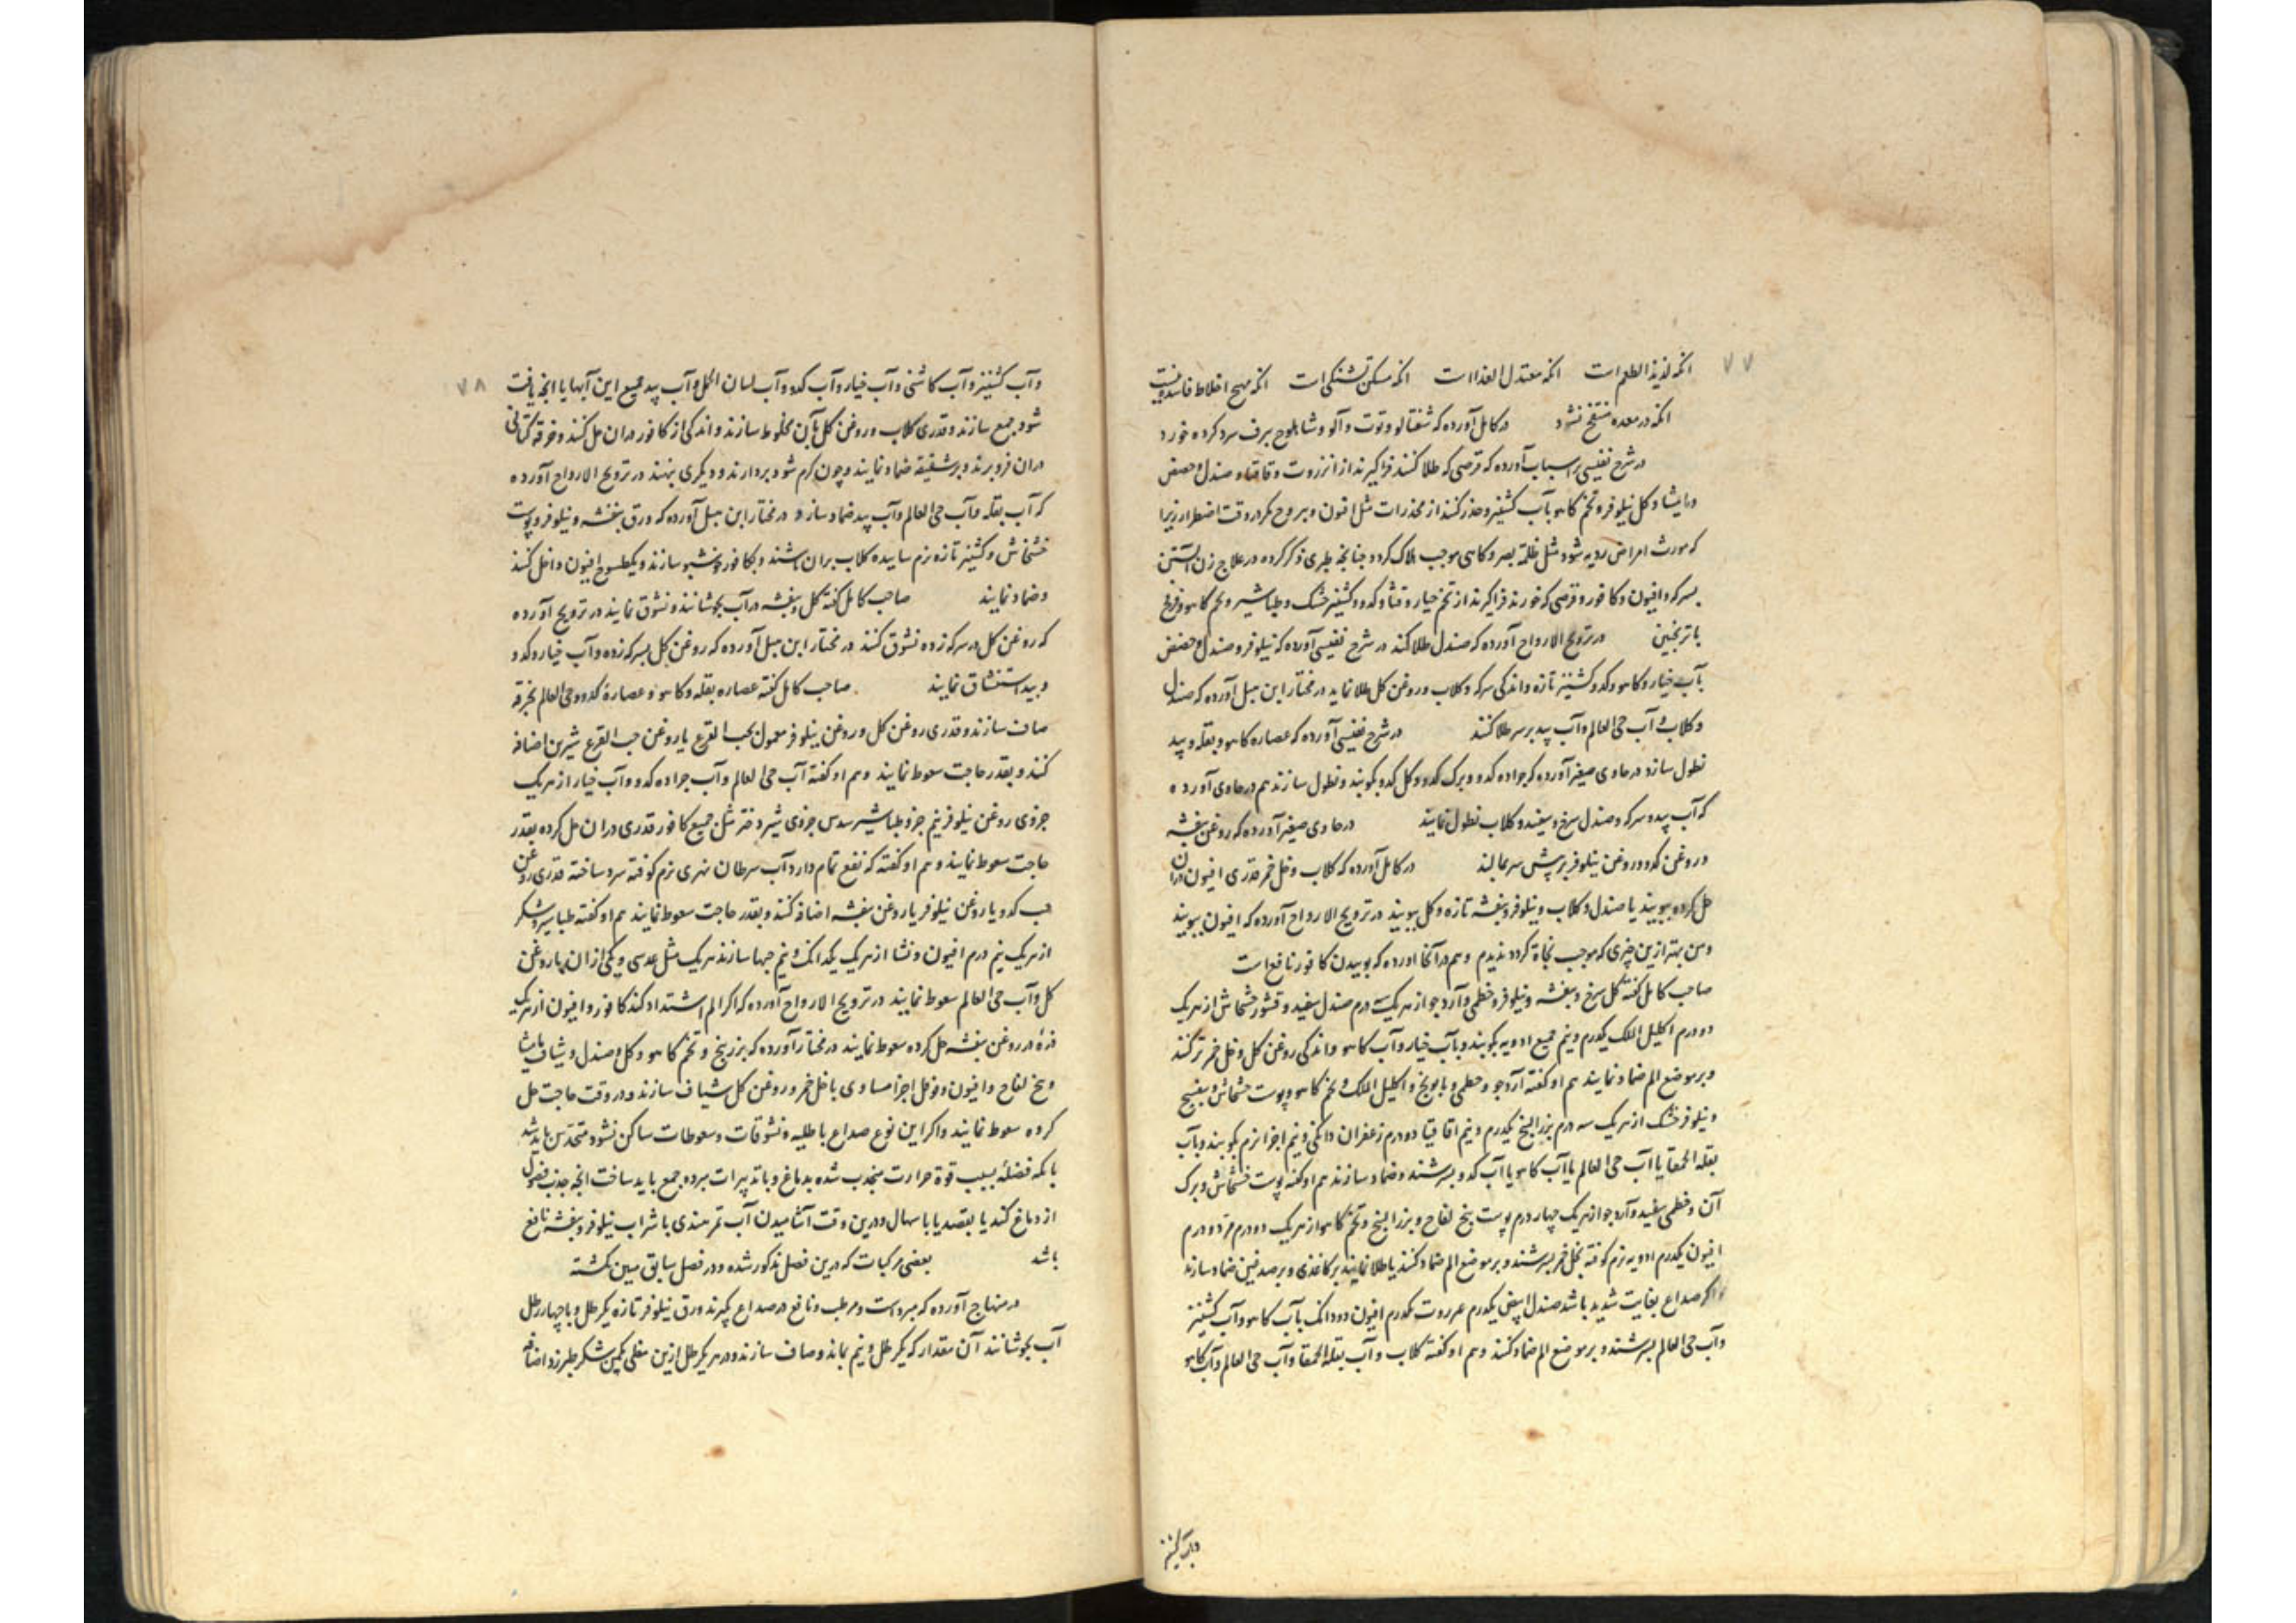 ۷۷
انکه لذیذ الطعم است انکه معتدل الغذا است انکه مسکن تشنکی است انکه مهیج اخلاط فاسده نیست
انکه در معده منتفخ نشود در کامل آورده که شفتالو و توت و آلو و شابلوج ببرف سرد کرده خورد
در شرح نفیسی بر اسباب آورده که قرصی که طلا کنند فراکیرند از انزروت و قاقیا و صندل و حضض
و مامیثا و کل نیلوفر و تخم کاهو بآب کشنیز و حذر کنند از مخدرات مثل افیون و یبروح مکر در وقت اضطرار زیرا
که مورث امراض ردیه شود مثل ظلمة بصر و کاهی موجب هلاک کردد چنانچه طبری ذکر کرده در علاج زن آبستن
بسرکه و افیون و کافور و قرصی که خورند فراکیرند از تخم خیار و قثا و کدو و کشنیز خشک و طباشیر و تخم کاهو و خرفه
با ترنجبین در ترویح الارواح آورده که صندل طلا کند در شرح نفیسی آورده که نیلوفر و صندل و حضض
بآب خیار و کاهو و کدو و کشنیز تازه و اندکی سرکه و کلاب و روغن کل طلا نماید در مختار ابن هبل آورده که صندل
و کلاب و آب حی العالم و آب بید بر سر طلا کنند در شرح نفیسی آورده که عصاره کاهو و بقله و بید
نطول سازد در حاوی صغیر آورده که جراده کدو و برک کدو و کل کدو بکوبند و نطول سازند هم در حاوی آورده
که آب بید و سرکه و صندل سرخ و سفید و کلاب نطول نمایند در حاوی صغیر آورده که روغن بنفشه
و روغن کدو و روغن نیلوفر بر پیش سر بمالند در کامل آورده که کلاب و خل خمر قدری افیون دران
حل کرده ببویند یا صندل و کلاب و نیلوفر و بنفشه تازه و کل ببویند در ترویح الارواح آورده که افیون ببویند
و من بهتر ازین چیزی که موجب نجاة کردد ندیدم و هم در آنجا اورده که بوییدن کافور نافع است
صاحب کامل کفته کل سرخ و بنفشه و نیلوفر و خطمی و آرد جو از هریک سه درم صندل سفید و قشور خشخاش از هریک
دو درم اکلیل الملک یکدرم و نیم جمیع ادویه بکوبند و بآب خیار و آب کاهو و اندکی روغن کل و خل خمر تر کنند
و بر موضع الم ضماد نمایند هم او کفته آرد جو و خطمی و بابونج و اکلیل الملک و تخم کاهو و پوست خشخاش و بنفسج
و نیلوفر خشک از هریک سه درم بزر البنج یکدرم و نیم اقاقیا دو درم زعفران دانکی و نیم اجزا نرم بکوبند و بآب
بقلة الحمقا یا آب حی العالم یا آب کاهو یا آب کدو بسرشند و ضماد سازند هم او کفته پوست خشخاش و برک
آن و خطمی سفید و آرد جو از هریک چهار درم پوست بیخ لفاح و بزر البنج و تخم کاهو از هریک دو درم مر دو درم
افیون یکدرم ادویه نرم کوفته بخل خمر بسرشند و بر موضع الم ضماد کنند یا طلا نمایند بر کاغذی و بر صدغین ضماد سازند
و اکر صداع بغایت شدید باشد صندل ابیض یکدرم عنزروت یکدرم افیون دو دانک بآب کاهو و آب کشنیز
و آب حی العالم بسرشند و بر موضع الم ضماد کنند و هم او کفته کلاب و آب بقلة الحمقا و آب حی العالم و آب کاهو
و آب کشنیز
۷۸
و آب کشنیز و آب کاشنی و آب خیار و آب کدو و آب لسان الحمل و آب بید جمیع این آبها یا انچه یافت
شود جمع سازند و قدری کلاب و روغن کل بآن مخلوط سازند و اندکی از کافور دران حل کنند و خرقه کتانی
دران فرو برند و بر شقیقه ضماد نمایند و چون کرم شود بردارند و دیکری بنهند در ترویح الارواح آورده
که آب بقله و آب حی العالم و آب بید ضماد سازد و در مختار ابن هبل آورده که ورق بنفشه و نیلوفر و پوست
خشخاش و کشنیز تازه نرم ساییده کلاب بران باشند و بکافور خوشبو سازند و یکطسوج افیون داخل کنند
و ضماد نمایند صاحب کامل کفته کل و بنفشه در آب بجوشانند و نشوق نمایند در ترویح آورده
که روغن کل در سرکه زده نشوق کنند در مختار ابن هبل آورده که روغن کل بسرکه زده و آب خیار و کدو
و بید استنشاق نمایند صاحب کامل کفته عصاره بقله و کاهو و عصارهٔ کدو و حی العالم بخرقه
صاف سازند و قدری روغن کل و روغن نیلوفر معمول بحب القرع یا روغن حب القرع شیرین اضافه
کنند و بقدر حاجت سعوط نمایند و هم او کفته آب حی العالم و آب جراده کدو و آب خیار از هریک
جزوی روغن نیلوفر نیم جزو طباشیر سدس جزوی شیر دختر مثل جمیع کافور قدری دران حل کرده بقدر
حاجت سعوط نمایند و هم او کفته که نفع تمام دارد آب سرطان نهری نرم کوفته سرد ساخته قدری روغن
حب کدو یا روغن نیلوفر یا روغن بنفشه اضافه کنند و بقدر حاجت سعوط نمایند هم او کفته طباشیر و شکر
از هریک نیم درم افیون و نشا از هریک یکدانک و نیم حبها سازند هریک مثل عدسی و یکی ازان بروغن
کل و آب حی العالم سعوط نمایند در ترویح الارواح آورده که اکر الم اشتداد کند کافور و افیون از هریک
ذرهٔ در روغن بنفشه حل کرده سعوط نمایند در مختار آورده که بزر بنج و تخم کاهو و کل و صندل و شیاف مامیثا
و بیخ لفاح و افیون و فوفل اجزا مساوی با خل خمر و روغن کل شیاف سازند و در وقت حاجت حل
کرده سعوط نمایند و اکر این نوع صداع باطلیه و نشوقات و سعوطات ساکن نشود متحدس باید شد
بانکه فضلهٔ بسبب قوة حرارت منجذب شده بدماغ و با تدبیرات مبرده جمع باید ساخت انچه جذب فضول
از دماغ کند یا بفصد یا باسهال و درین وقت آشامیدن آب تمر هندی با شراب نیلوفر و بنفشه نافع
باشد بعضی مرکبات که درین فصل مذکور شده و در فصل سابق مبین نکشته
در منهاج آورده که مبرد است و مرطب و نافع در صداع بکیرند ورق نیلوفر تازه یکرطل و با چهار رطل
آب بجوشانند آن مقدار که یکرطل و نیم بماند و صاف سازند و در هر یکرطل ازین مغلی یکمن شکر طبرزد اضافه